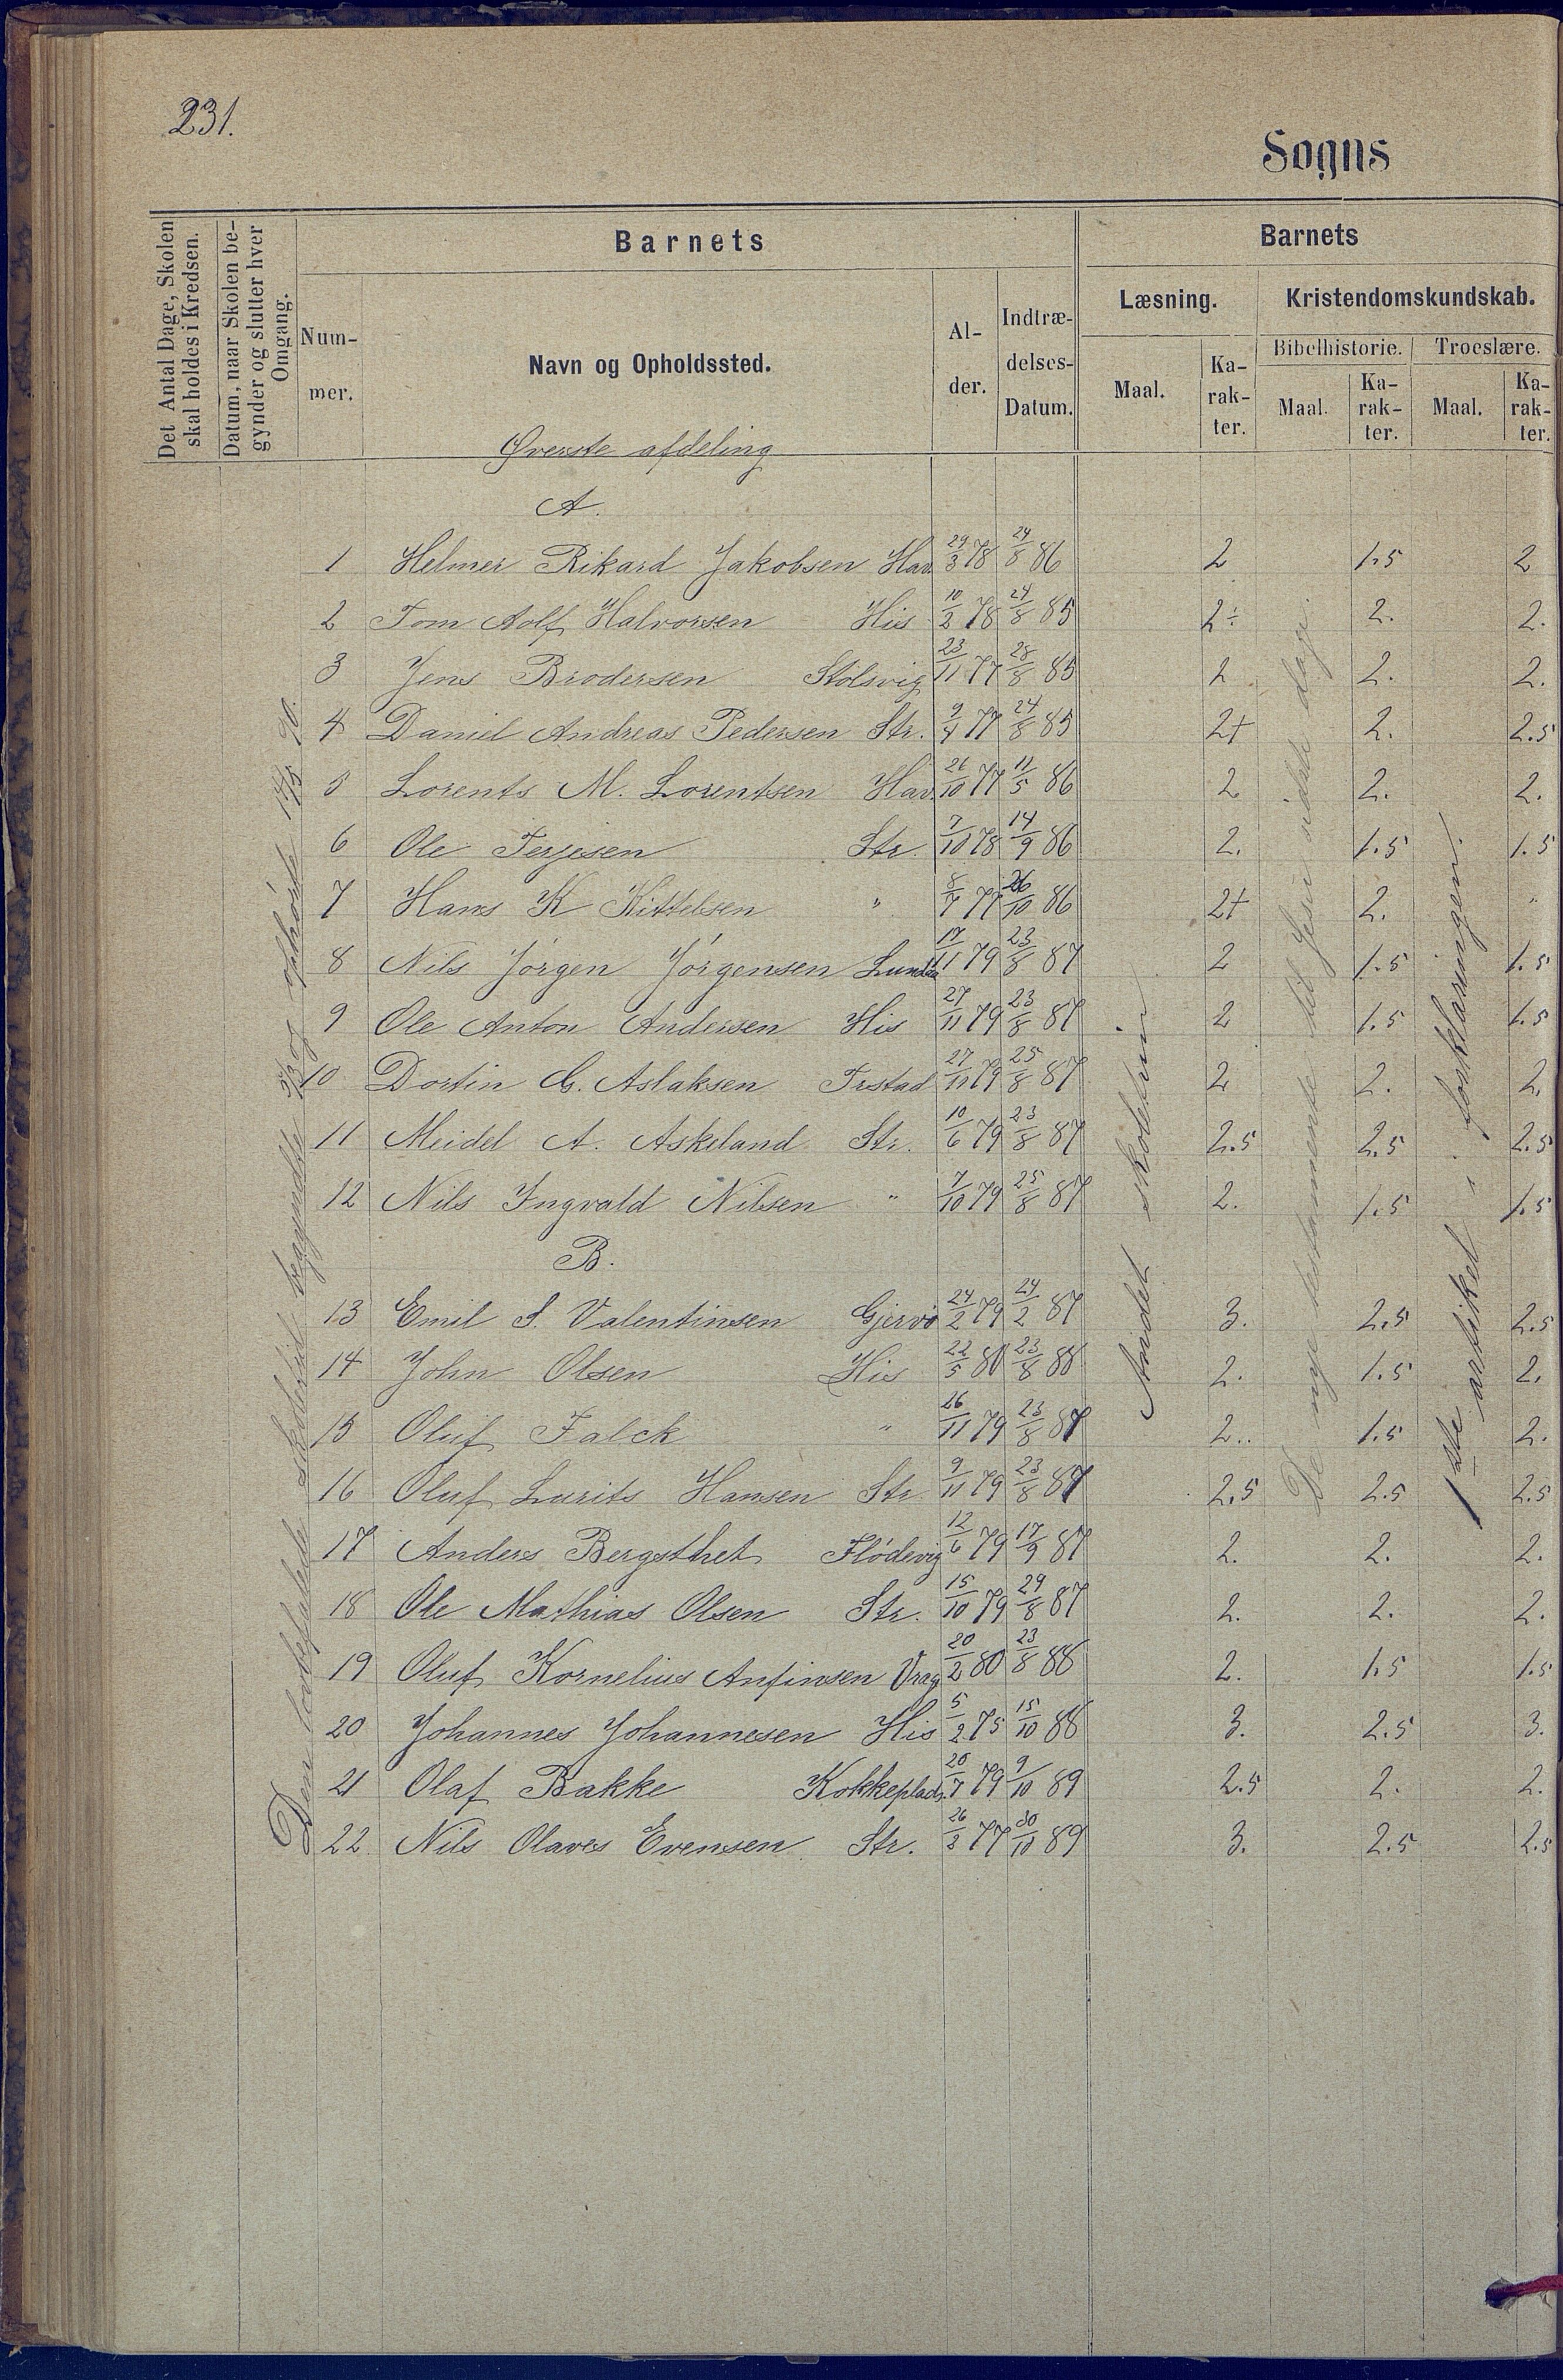 231.
Sogns
Det Antal Dage, Skolen
skal holdes i Kredsen.
Datum, naar Skolen be-
gynder og slutter hver
Omgang.
Barnets
Num-
mer.
Navn og Opholdssted.
Al-
der.
Indtræ-
delses-
Datum.
Barnets
Læsning.
Maal.
Ka-
rak-
ter.
Kristendomskundskab.
Bibelhistorie.
Maal.
Ka-
rak-
ter.
Troeslære.
Maal.
Ka-
rak-
ter.
Øverste afdeling
A.
1 Helmer Rikard Jakobsen Hav. 29/3 78 24/8 86 2 1.5 2
2 Tom Adolf Halvorsen His 10/2 78 24/8 85 2÷ 2. 2.
3 Jens Brodersen Stölsvig 23/11 77 28/8 85 2 2. 2.
4 Daniel Andreas Pedersen Str. 9/4 77 24/8 85 2+ 2. 2.5
5 Lorents M. Lorentsen Hav. 26/10 77 11/5 86 2 2. 2.
6 Ole Terjesen Str. 7/10 78 14/9 86 2. 1.5 1.5
7 Hans K Kittelsen " 8/7 77 26/10 86 2+ 2. "
8 Nils Jörgen Jörgensen 17/11 79 23/8 87 2 1.5 1.5
9 Ole Anton Andersen His 27/11 79 23/8 87 2 1.5 1.5
10 Dortin G. Aslaksen Trstad 27/11 79 25/8 87 2 2. 2.
11 Meidel A. Askeland Str. 10/6 79 23/8 87 2.5 2.5 2.5
12 Nils Ingvald Nilsen " 7/10 79 25/8 87 2. 1.5 1.5
B.
13 Emil S. Valentinsen Gjervö 24/2 79 24/2 87 3. 2.5 2.5
14 John Olsen His 22/5 80 23/8 88 2. 1.5 2.
15 Oluf Falck " 26/11 79 23/8 87 2.. 1.5 2.
16 Oluf Lurits Hansen Str. 9/11 79 23/8 87 2.5 2.5 2.5
17 Anders Bergsthet Flödevig 12/6 79 17/9 87 2. 2. 2.
18 Ole Mathias Olsen Str. 15/10 79 29/8 87 2. 2. 2.
19 Oluf Kornelius Anfinsen Vrag 20/2 80 23/8 88 2. 1.5 1.5
20 Johannes Johannesen His 5/2 75 15/10 88 3. 2.5 3.
21 Olaf Bakke Kokkeplads. 20/7 79 9/10 89 2.5 2. 2.
22 Nils Olaves Evensen Str. 26/2 77 30/10 89 3. 2.5 2.5
Den lovbefalede skoletid begyndte og ophörte 90.
Andet skoletrin
De nye testamente til Jesu sidste dage.
1ste artikel i forklaringen.